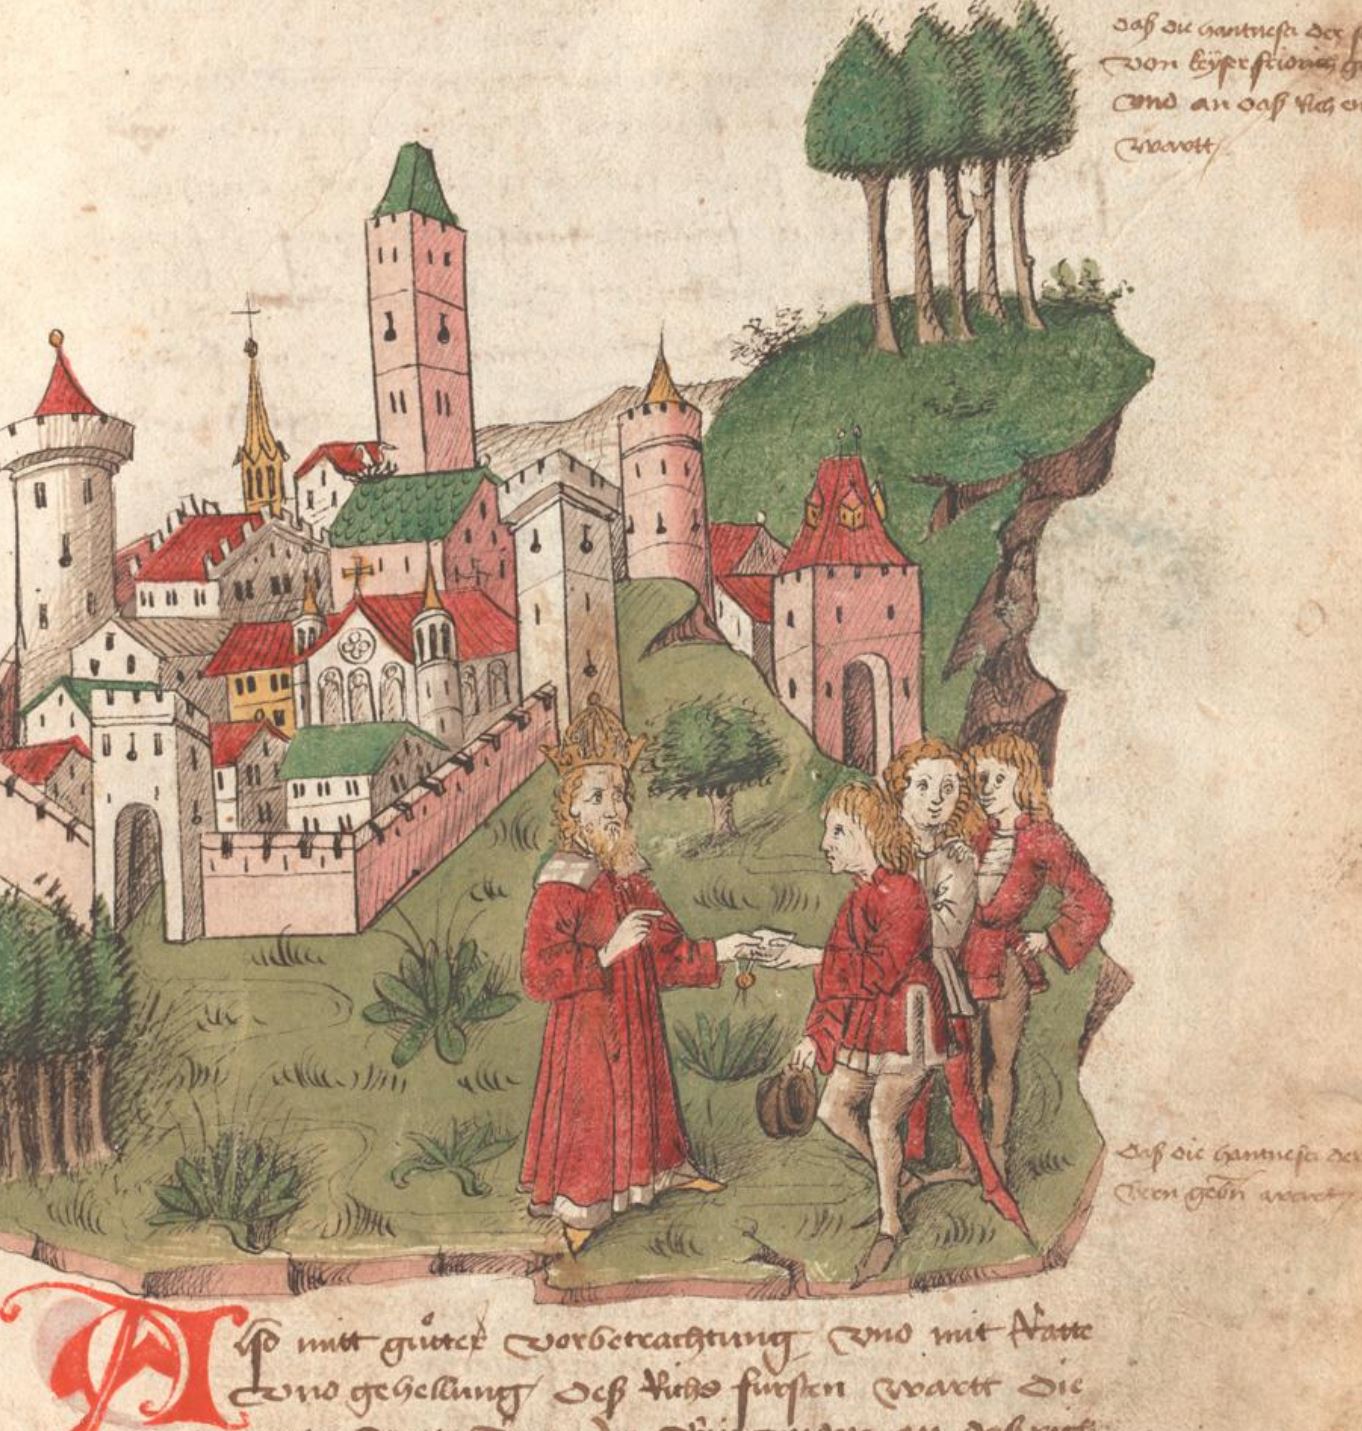 daß die hantvesti der s
von keyser fridrich g
vnd an daß Rich e
wartt
daß die hantvesti de
bern gebn wart
Also mitt gůtter vorbetrachtung vnd mit Ratte
vnd gehellung deß Richs fursten wartt die